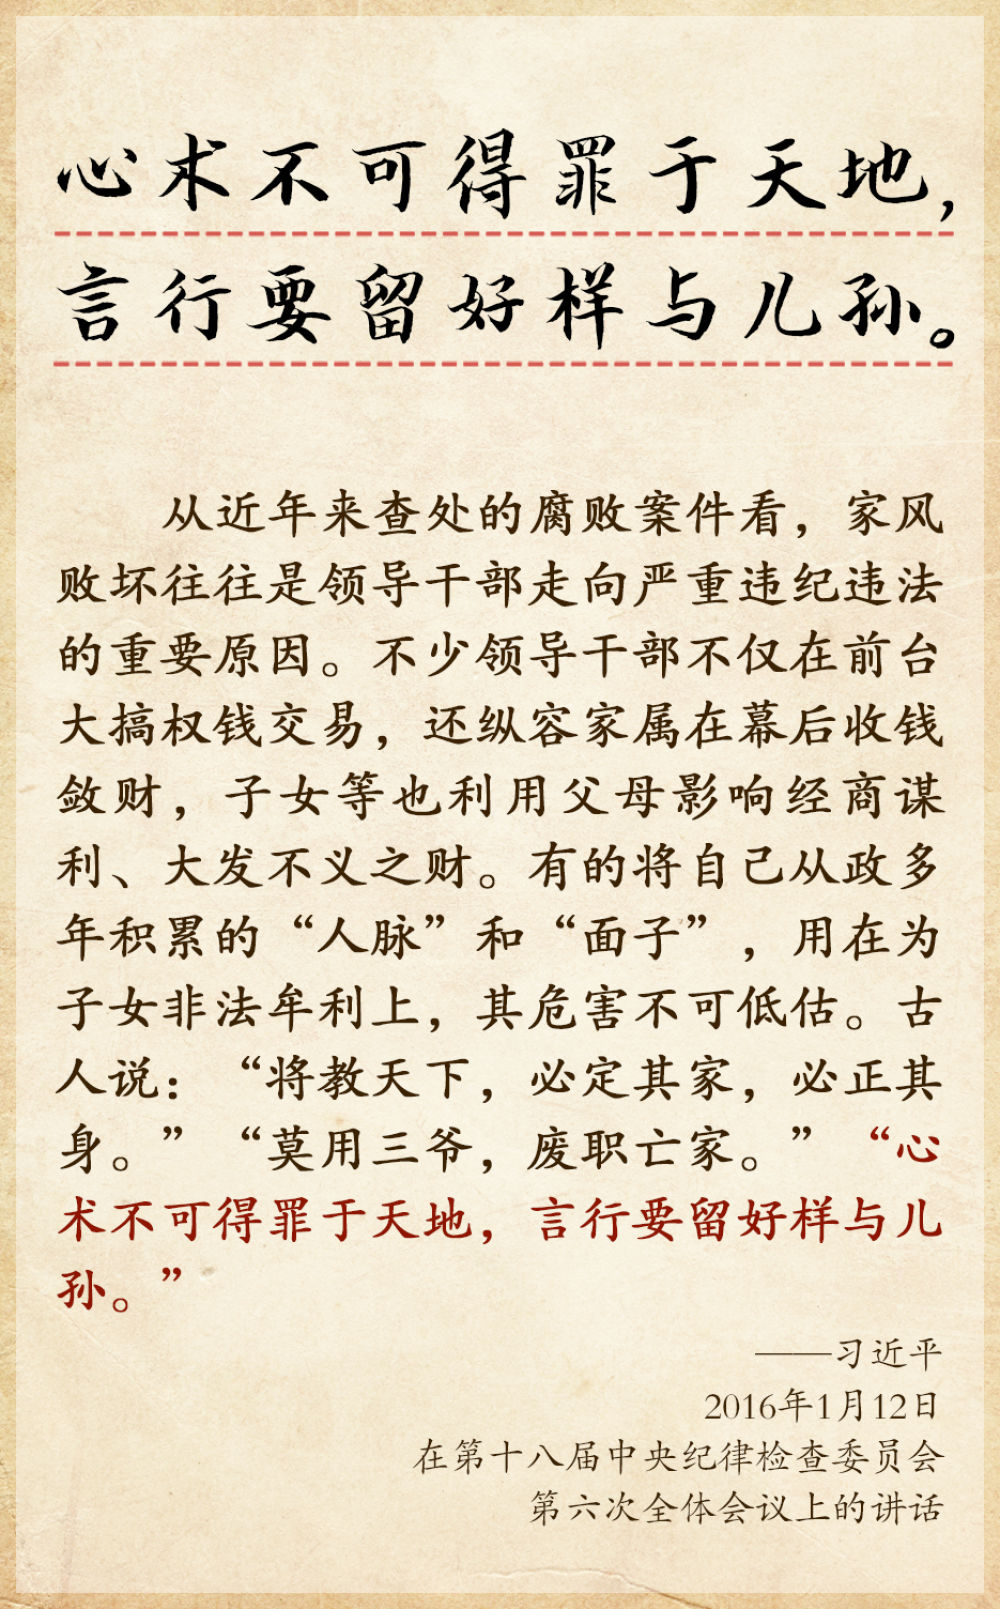 心术不可得罪于天地，
言行要留好样与儿孙。
从近年来查处的腐败案件看，家风
败坏往往是领导干部走向严重违纪违法
的重要原因。不少领导干部不仅在前台
大搞权钱交易，还纵容家属在幕后收钱
敛财，子女等也利用父母影响经商谋
利、大发不义之财。有的将自己从政多
年积累的“人脉”和“面子”，用在为
子女非法牟利上，其危害不可低估。古
人说：“将教天下，必定其家，必正其
身。”“莫用三爷，废职亡家。”“心
术不可得罪于天地，言行要留好样与儿
孙。”
——习近平
2016年1月12日
在第十八届中央纪律检查委员会
第六次全体会议上的讲话